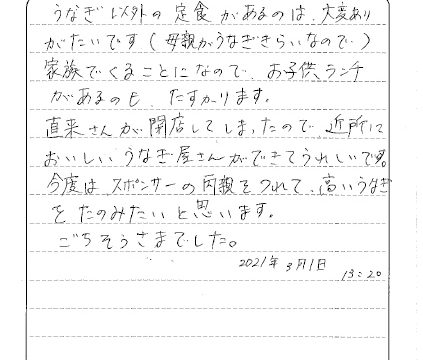 うなぎ以外の定食があるのは、大変あり
がたいです(母親がうなぎきらいなので)
家族でくることになので、お子供、ランチ
があるのも、たすかります。
直来さんが閉店してしまったので、近所に
おいしいうなぎ屋さんができてうれしいです。
今度は、スポンサーの両親をつれて、高いうなぎ
をたのみたいと思います。
ごちそうさまでした。
2021年3月1日
13:20